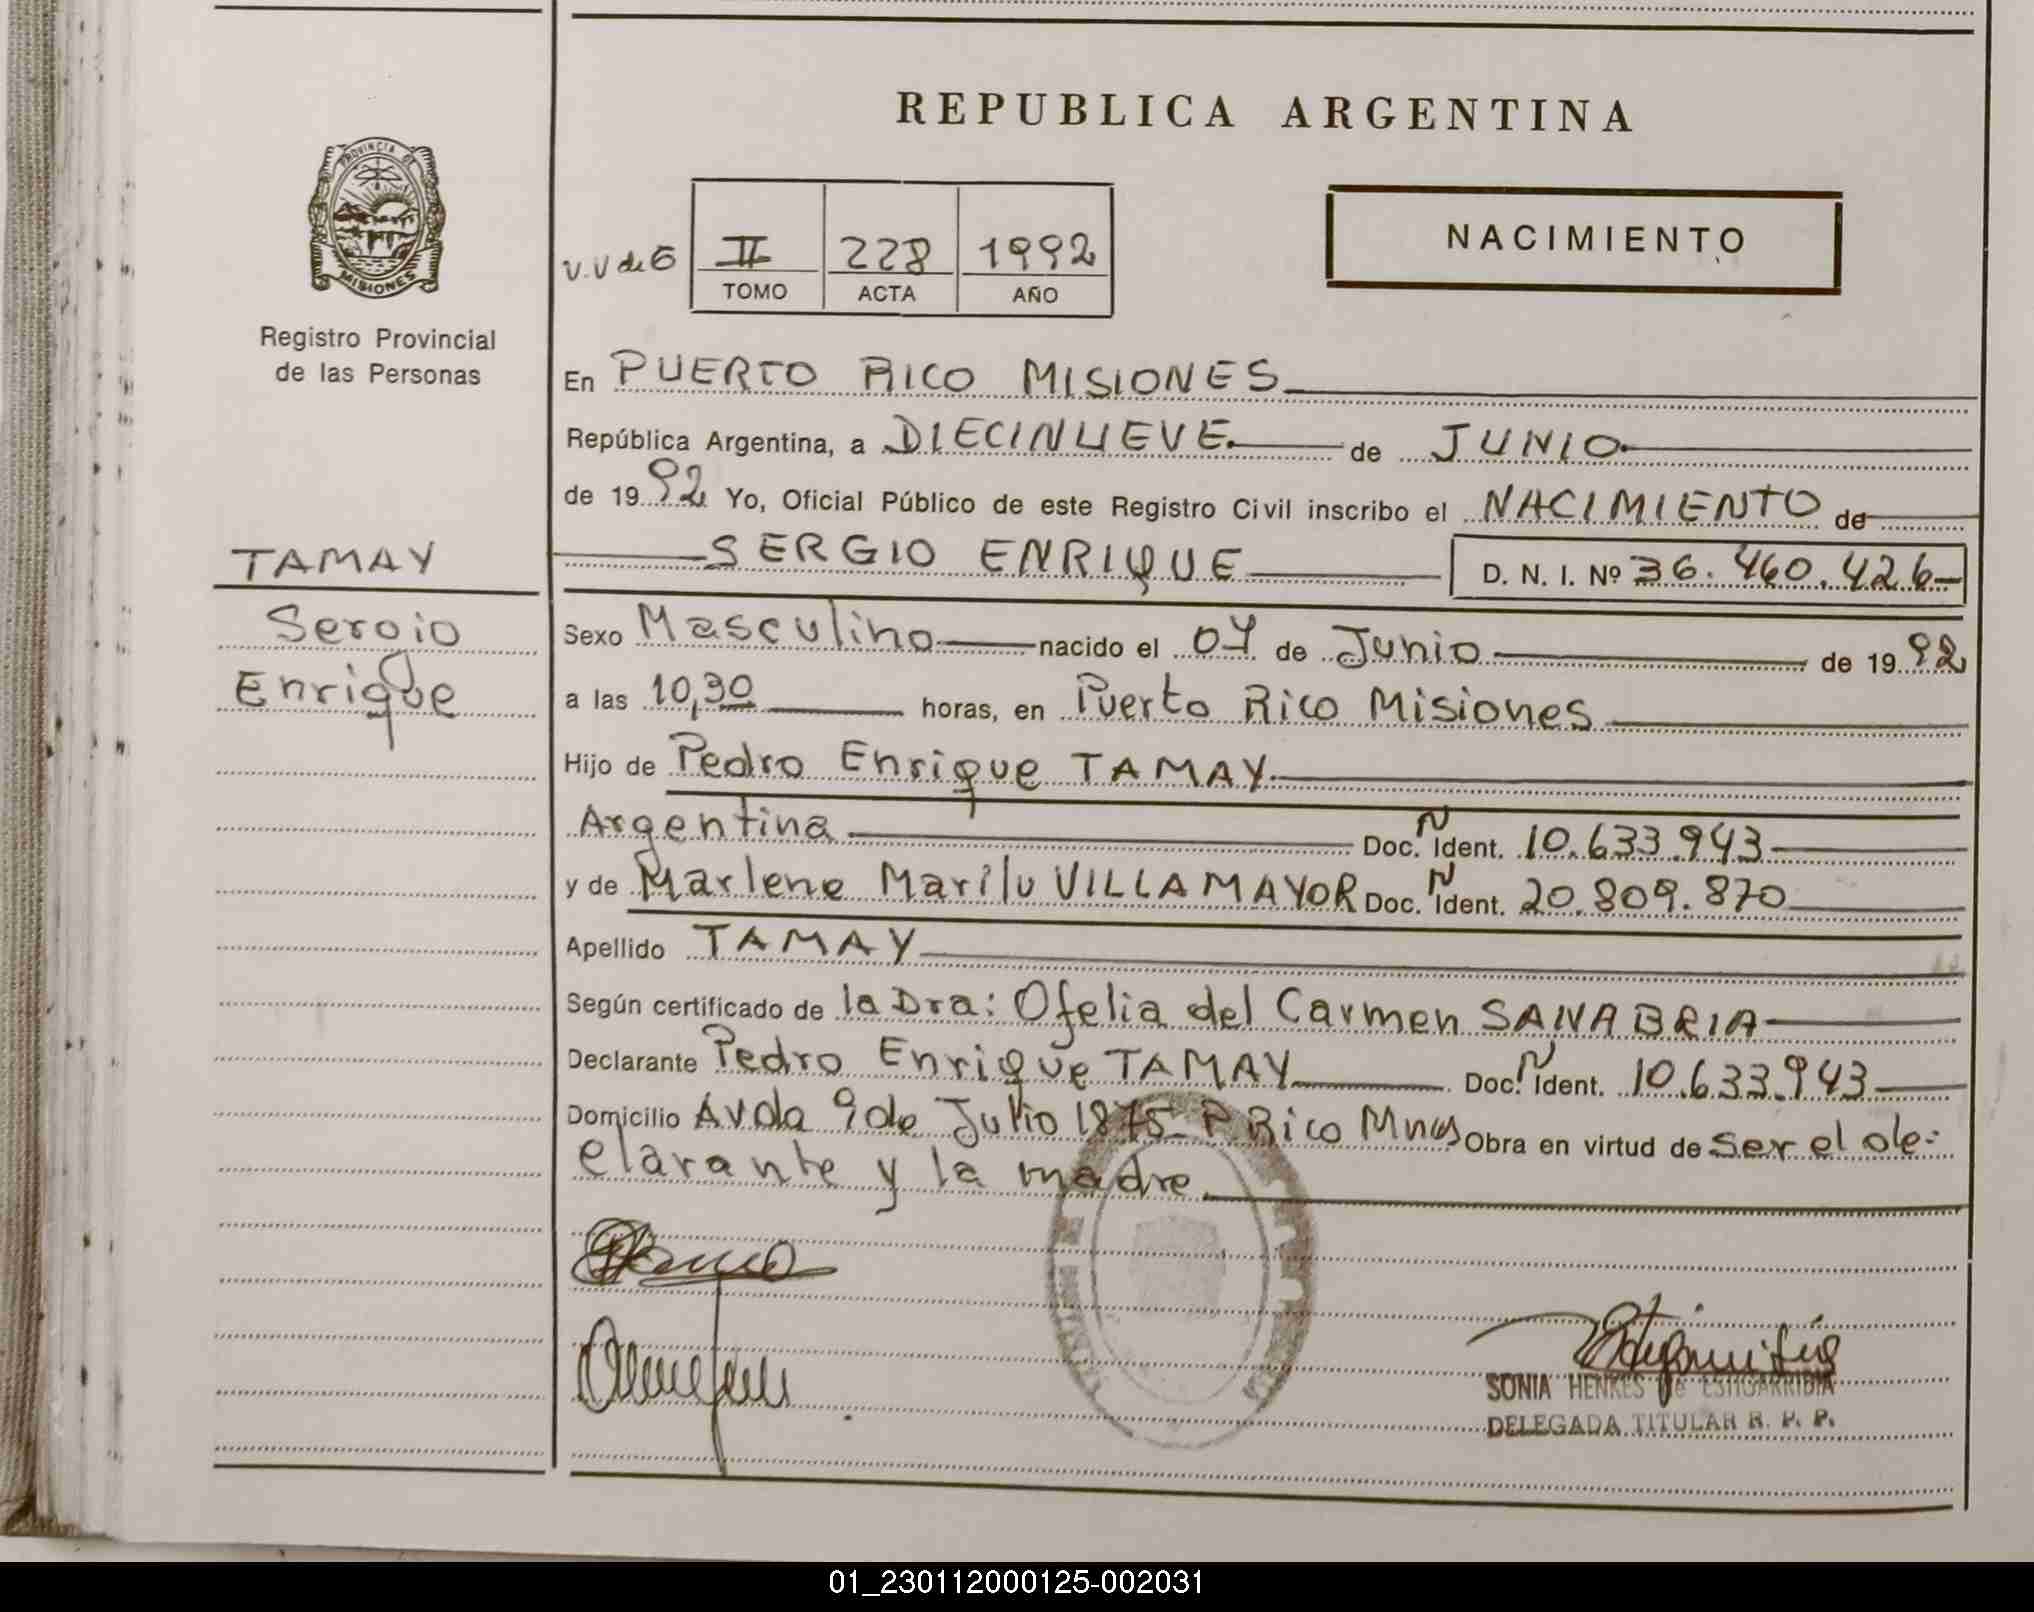 REPUBLICA ARGENTINA
PROVINCIA DE
MISIONES
Registro Provincial
de las Personas
NACIMIENTO
V.V de G II 228 1992
TOMO ACTA AÑO
En PUERTO RICO MISIONES
República Argentina, a DIECINUEVE de JUNIO
de 1992 Yo, Oficial Público de este Registro Civil inscribo el NACIMIENTO de
SERGIO ENRIQUE D. N. I. Nº 36.460.426
TAMAY
Sergio
Enrique
Sexo Masculino nacido el 07 de Junio de 1992
a las 10,30 horas, en Puerto Rico Misiones
Hijo de Pedro Enrique TAMAY
Argentina Doc. N Ident. 10.633.943
y de Marlene Marilu VILLAMAYOR Doc. N Ident. 20.809.870
Apellido TAMAY
Según certificado de la Dra: Ofelia del Carmen SANABRIA
Declarante Pedro Enrique TAMAY Doc. N Ident. 10.633.943
Domicilio Avda 9 de Julio 1875 - P Rico Mnes Obra en virtud de ser el de-
clarante y la madre
SONIA HENKES de ESTIGARRIBIA
DELEGADA TITULAR R. P. P.
01_230112000125-002031